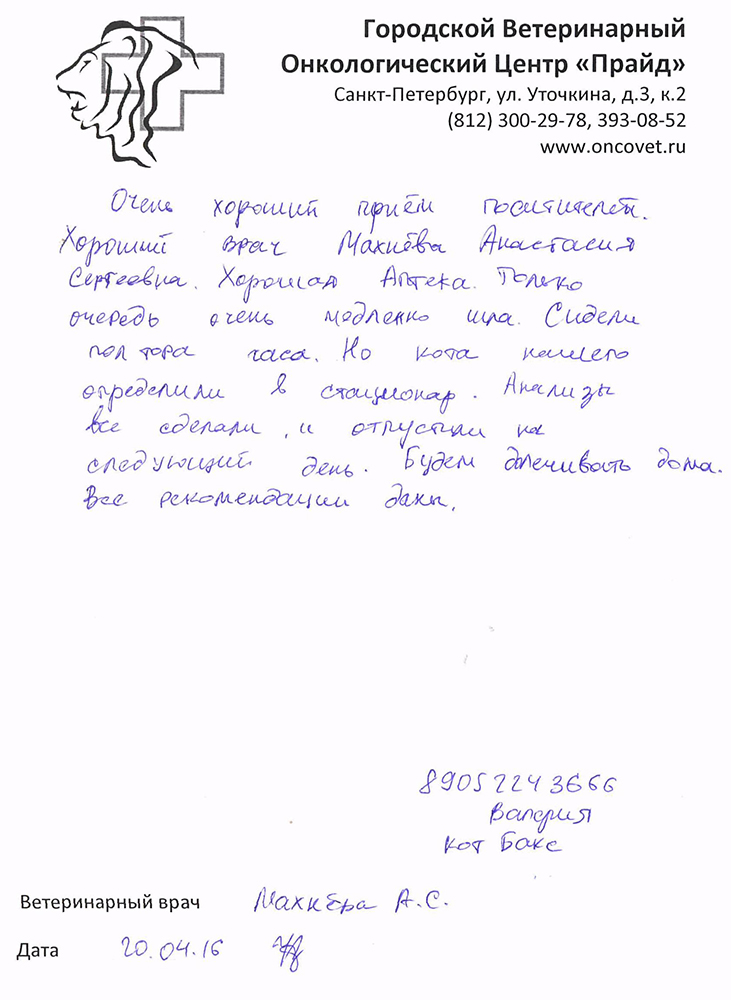 Городской Ветеринарный
Онкологический Центр «Прайд»
Санкт-Петербург, ул. Уточкина, д.3, к.2
(812) 300-29-78, 393-08-52
www.oncovet.ru
Очень хороший приём поситителей.
Хороший врач Махнёва Анастасия
Сергеевна. Хорошая Аптека. Только
очередь очень медленно шла. Сидели
пол тора часа. Но кота нашего
определили в стационар. Анализы
все сделали, и отпустили на
следующий день. Будем долечивать дома.
Все рекомендации даны.
89052243666
Валерия
Кот Бакс
Ветеринарный врач Махнёва А.С.
Дата 20.04.16